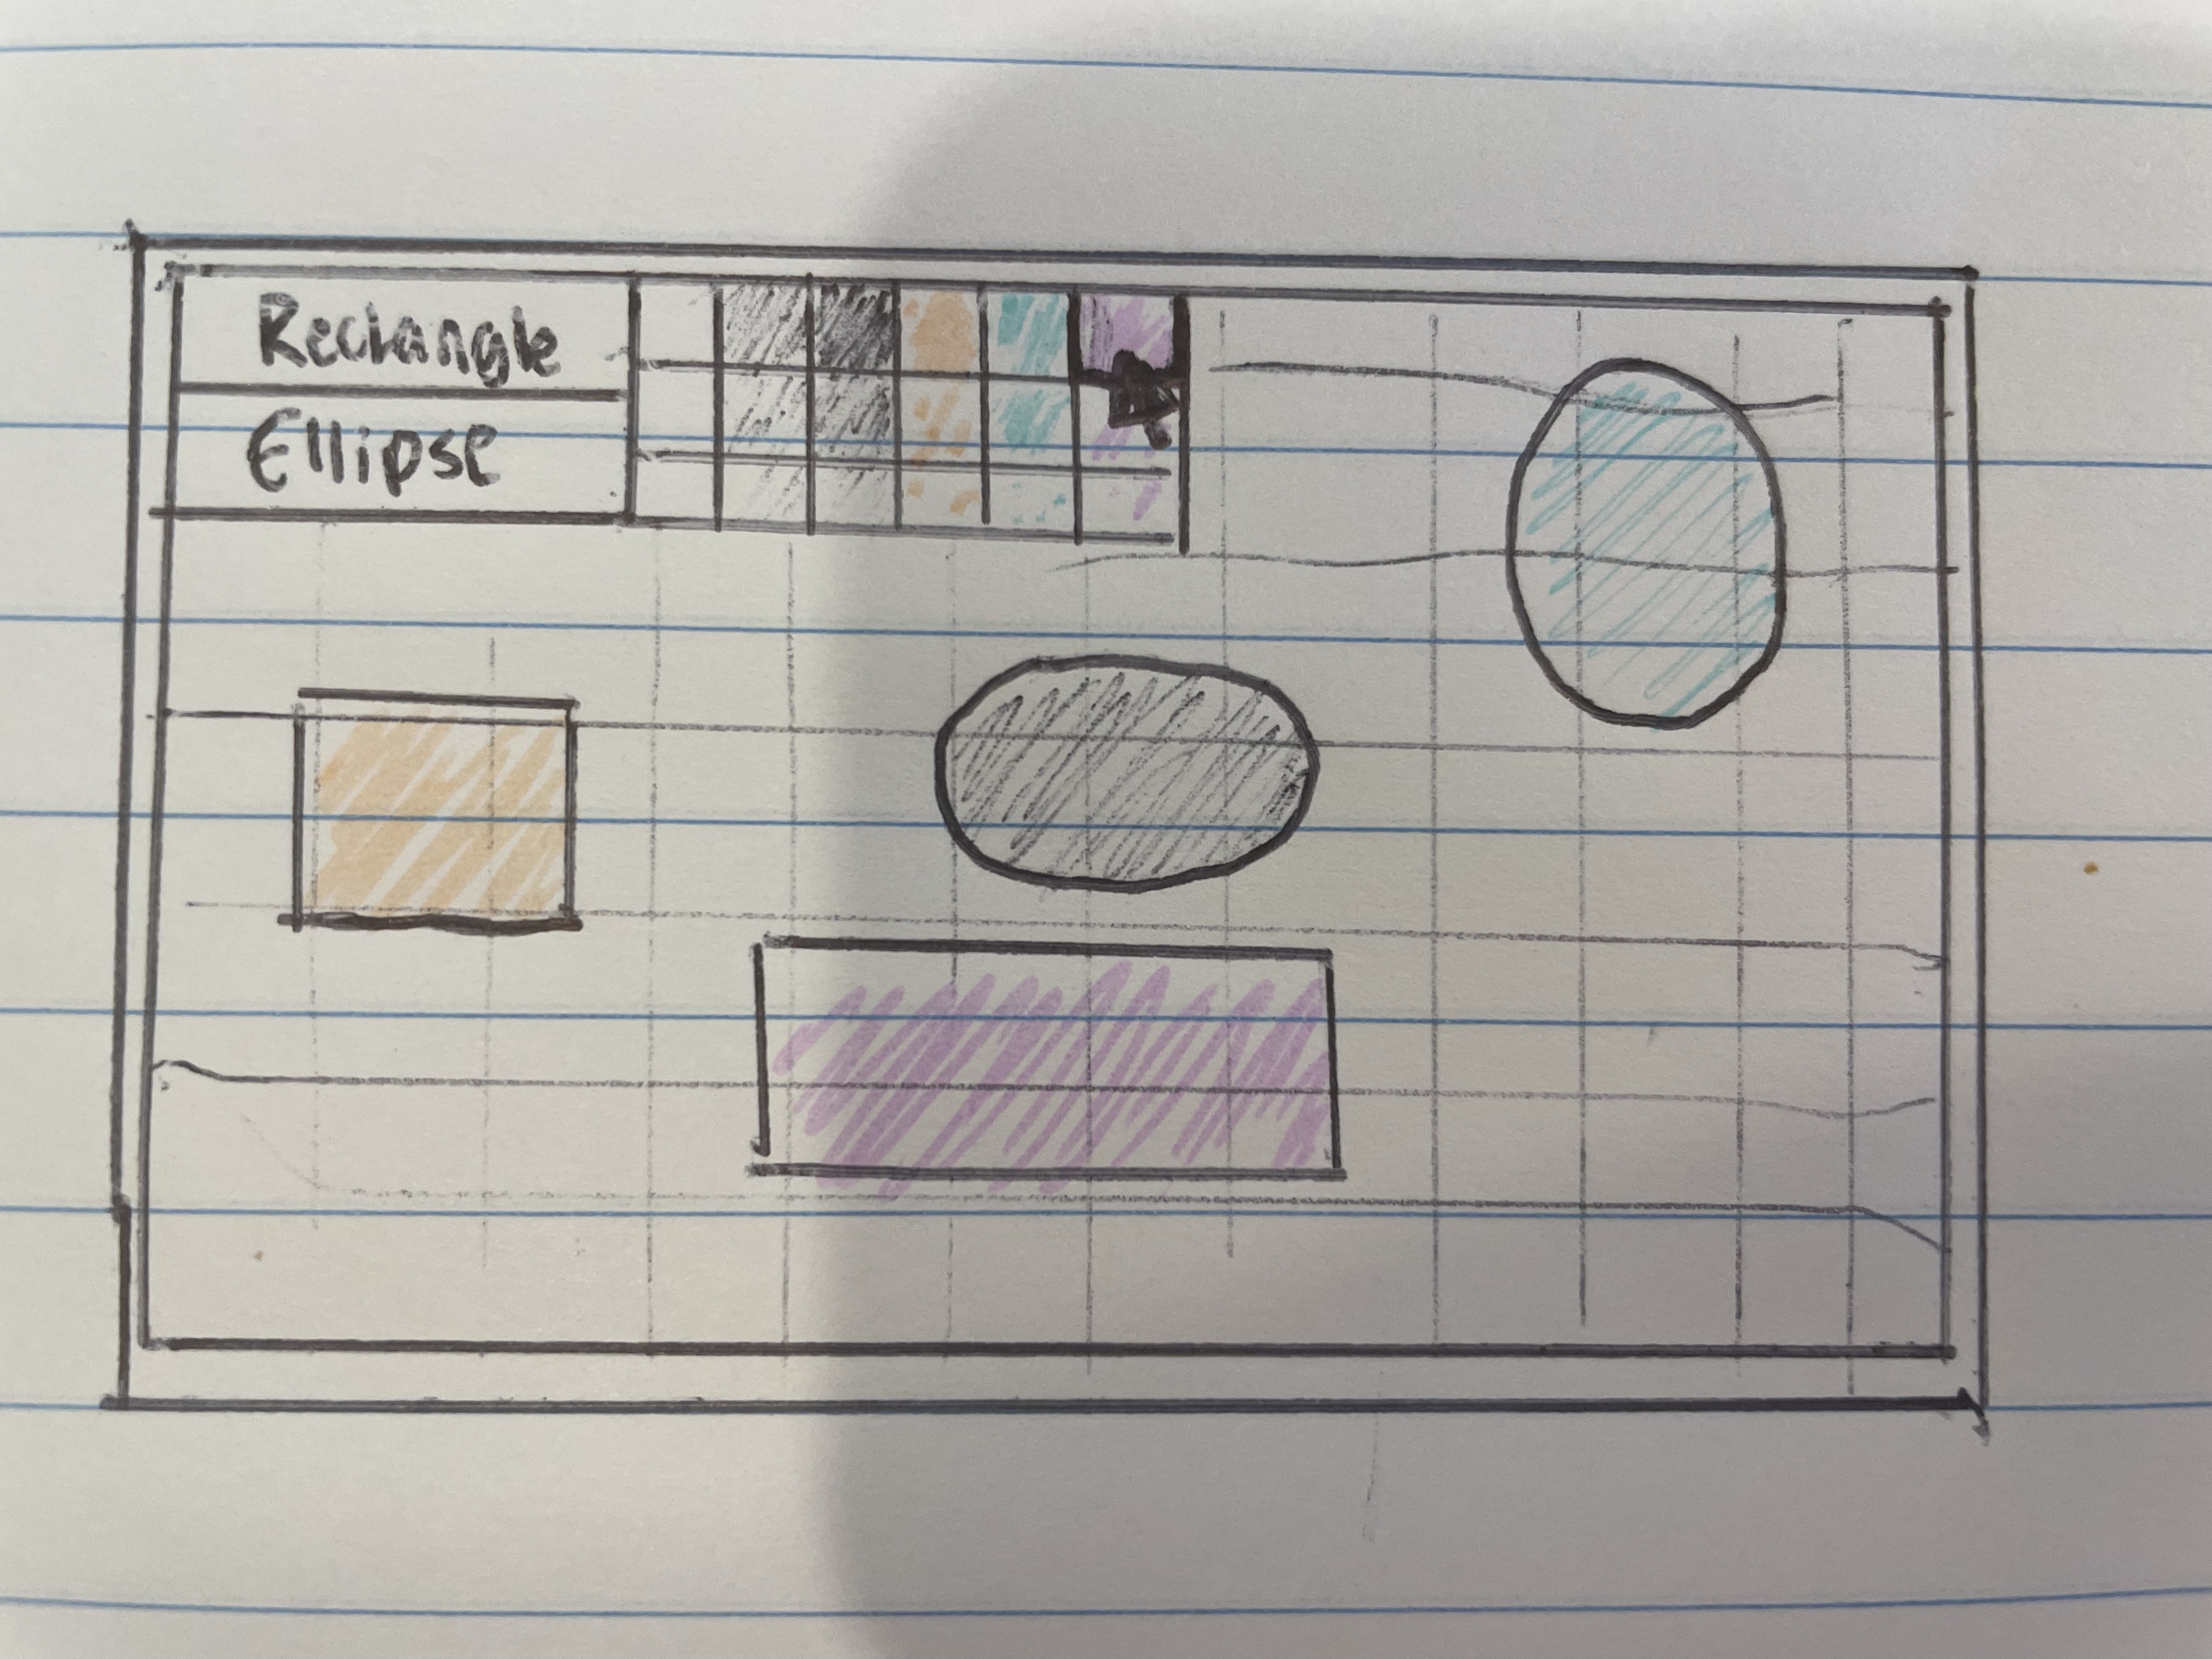 Rectangle
Ellipse